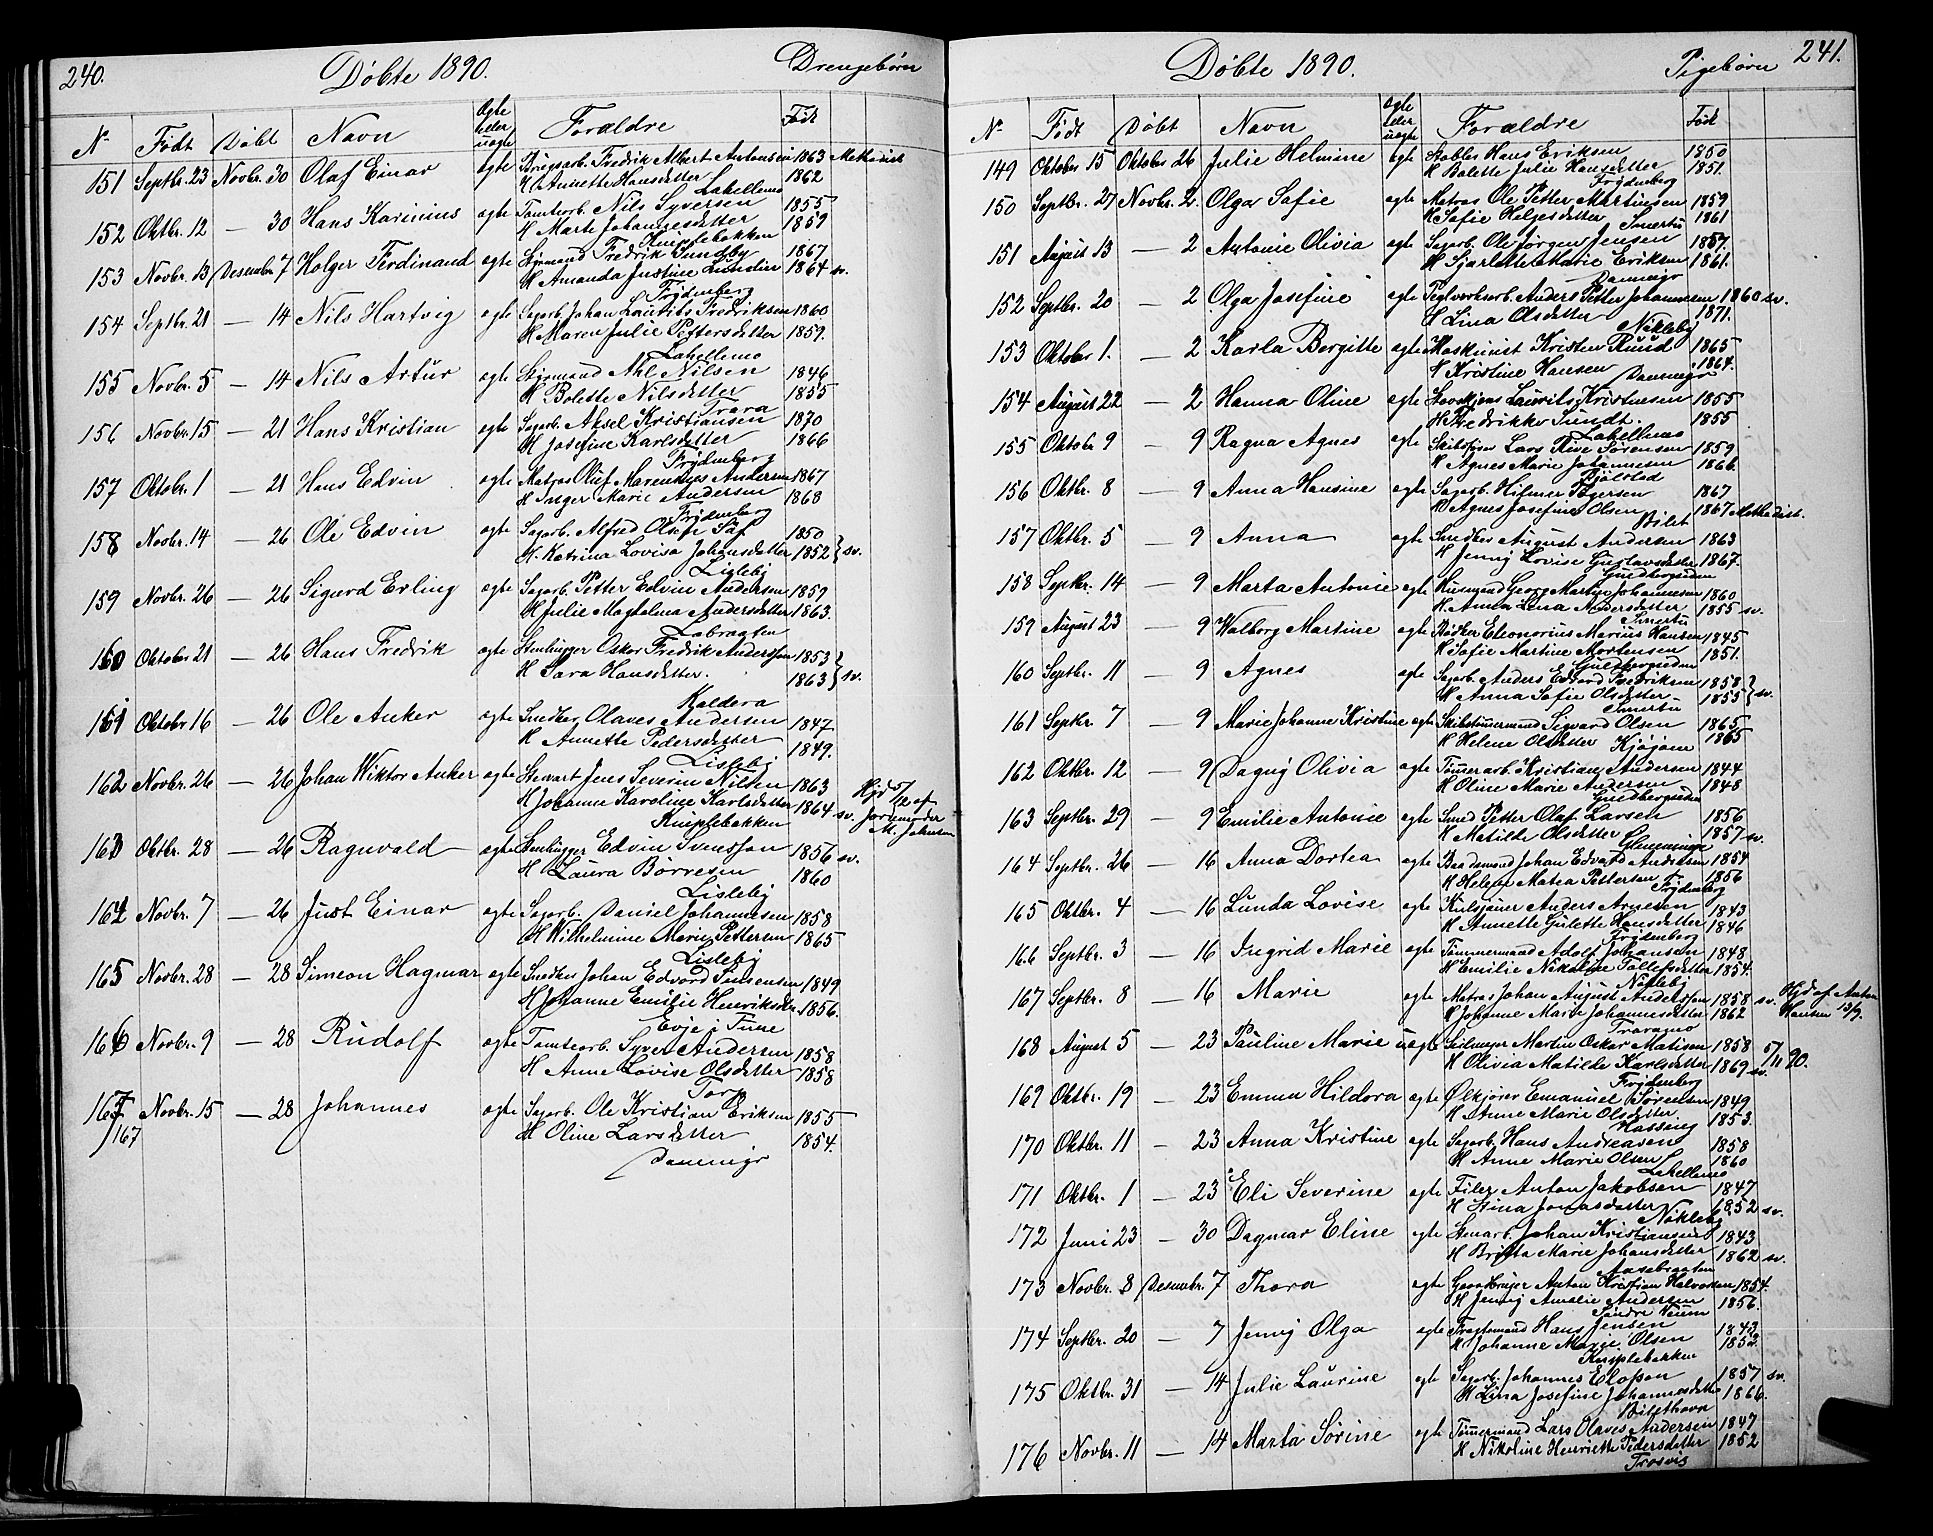 240. Døbte 1890. Drengebørn
No Født Døbt Navn Ægte eller uægte Forældre Født
151 Septbr. 23 Novbr. 30 Olaf Einar egte Brugsarb. Fredrik Albert Antonsen 1863 Methodist
H Annette Hansdatter 1862
Lahellemo
152 Oktbr. 12 — 30 Hans Karinius egte Tomtearb. Nils Syversen 1855
H Marte Johannesdatter 1859
Kniplebakken
153 Novbr. 13 Desember 7 Holger Ferdinand egte Styrmand Fredrik Sundby 1867
H Amanda Justine Lundin 1864 sv.
Frydenberg
154 Septbr. 21 — 14 Nils Hartvig egte Sagarb. Johan Lauritz Fredriksen 1860
H Maren Julie Pettersdatter 1859.
Lahellemo
155 Novbr. 5 — 14 Nils Artur egte Styrmand Nilsen 1846
H Bolette Nilsdatter 1855
Trara
156 Novbr. 15 — 21 Hans Kristian egte Sagarb. Aksel Kristiansen 1870
H Josefine Karlsdatter 1866
Frydenberg
157 Oktobr. 1 — 21 Hans Edvin egte Matros Oluf Andersen 1867
H Inger Marie Andersen 1868
Frydenberg
158 Novbr. 14 — 26 Ole Edvin egte Sagarb. Alfred Olsen Säf 1850
H. Katrina Lovisa Johansdatter 1852 } sv.
Lisleby
159 Novbr. 26 — 26 Sigurd Erling egte Sagarb. Petter Edvin Andersen 1859
H Julie Magdalena Andersdatter 1863.
Labraaten
160 Oktober 21 — 26 Hans Fredrik egte Stenhugger Oskar Fredrik Andersson 1853
H Sara Hansdatter. 1863 } sv.
Kaldera
161 Oktobr 16 — 26 Ole Anker egte Snedker Olaves Andersen 1847
H Annette Pedersdatter 1849.
Lisleby
162 Novbr. 26 — 26 Johan Wiktor Anker egte Stewart Jens Severin Nilsen 1863
H Johanne Karoline Karlsdatter 1864 sv.
Kniplebakken
Hjd 5/12 af Jordemoder M. Johnsen
163 Oktbr. 28 — 26 Ragnvald egte Stenhugger Edvin Svensson 1856 sv.
H Laura Börresen 1860
Lisleby
164 Novbr. 7 — 26 Just Einar egte Sagarb. Daniel Johannesen 1858
H Wilhelmine Marie Pettersen 1865
Lisleby
165 Novbr. 28 — 28 Simeon Hagmar egte Snedker Johan Edvard Simensen 1849
H Johanne Emilie Henriksdtr 1856.
Evje i Tune
166 Novbr. 9 — 28 Rudolf egte Tomtearb. Syver Andersen 1858
H Anne Lovise Olsdatter 1858
Torp
167 Novbr. 15 — 28 Johannes egte Sagarb. Ole Kristian Eriksen 1855
/167 H Oline Larsdatter 1854.
Damminge
Døbte 1890. Pigebørn 241.
No Født Døbt Navn Ægte eller uægte Forældre Født
149 Oktober 15 Oktober 26 Julie Helmine egte Stabler Hans Eriksen 1850
H Bolette Julie Hansdatter 1851.
Frydenberg
150 Septbr. 27 Novbr. 2. Olga Sofie egte Matros Ole Petter Martinsen 1859
H Sofie Helgesdatter 1861
Smertu
151 August 13 — 2 Antonie Olivia egte Sagarb. Ole Jørgen Jensen 1857.
H Sjarlotte Marie Eriksen 1861.
Dammyr
152 Septbr. 20 — 2 Olga Josefine egte Teglverksarb. Anders Petter Johannesen 1860 sv.
H Lina Olsdatter 1871.
Nikleby
153 Oktober 1. — 2 Karla Bergitte egte Maskinist Kristen Ruud 1865
H Kristine Hansen 1864.
Dammyr
154 August 22 — 2 Hanna Oline egte Laurits Kristensen 1855
H Fredrikke Sundt. 1855
Lahellemo
155 Oktobr 9 — 9 Ragna Agnes egte Lars Sörensen 1859
H Agnes Marie Johannesen 1866.
Bjølstad
156 Oktbr. 8 — 9 Anna Hansine egte Sagarb. Hilmer Tygersen 1867
H Agnes Josefine Olsen 1867 Methodist.
Bilet
157 Oktbr. 5 — 9 Anna egte Snedker August Andersen 1863
H Jenny Lovise Gustavsdatter 1867.
158 Septbr. 14 — 9 Marta Antonie egte Georg Martin Johannesen 1860
H. Anna Lena Andersdatter 1855 sv.
Smertu
159 August 23 — 9 Walborg Martine egte Bødker Eleonorius Marius Hansen 1845
H Sofie Martine Mortensen 1851.
160 Septbr. 11 — 9 Agnes egte Sagarb. Anders Edvard Fredriksen 1858
H Anna Sofie Olsdatter 1855 } sv.
Smertu
161 Septbr. 7 — 9 Marie Johanne Kristine egte Skibstimmermand Sigvard Olsen 1865
H Helene Olsdatter 1865
162 Oktbr. 12 — 9 Dagny Olivia egte Tømmerarb. Kristian Andersen 1844
H Oline Marie Andersen 1848
163 Septbr. 29 — 9 Emilie Antonie egte Smed Petter Olaf Larsen 1856
H Matilde Olsdatter 1857 sv.
Glemminge
164 Septbr. 26 — 16 Anna Dortea egte Baadsmand Johan Edvard Andersen 1854
H Helene Matea Pettersen 1856
Frydenberg
165 Oktbr. 4 — 16 Lunda Lovise egte Anders Arnesen 1843
H Annette Gulette Hansdatter 1846
Frydenberg
166 Septbr. 3 — 16 Ingrid Marie egte Tømmermand Adolf Johansen 1848
H Emilie Nikoline Tollefsdatter 1854.
Nökleby
167 Septbr. 8 — 16 Marie egte Matros Johan August Andersson 1858 sv.
H Johanne Marie Johannesdatter 1862
Traramo
Hjd af Anton Hansen 13/9.
168 August 5 — 23 Pauline Marie uegte Seilmager Martin Oskar Matisen 1858
H Olivia Matilde Karlsdatter 1869 sv. 5/11 90.
Frydenberg
169 Oktbr. 19 — 23 Emma Hildora egte Ølkjører Emanuel Sörensen 1849
H Anne Marie Olsdatter 1853.
Hassing
170 Oktbr. 11 — 23 Anna Kristine egte Sagarb. Hans Andreasen 1858
H Anne Marie Olsen 1860
Lahellemo
171 Oktbr. 1 — 23 Eli Severine egte Filer Anton Jakobsen 1847
H Stina Jonasdatter 1852 sv.
Nökleby
172 Juni 23 — 30 Dagmar Eline egte Stenarb. Johan Kristiansen 1843
H Britta Marie Johansdatter 1862 sv.
Aasebraaten
173 Novbr. 8 Desember 7 Thora egte Gaardbruger Anton Kristian Halvorsen 1854.
H Jenny Amalie Andersen 1856.
Søndre Neum
174 Septbr. 20 — 7 Jenny Olga egte Fragtemand Hans Jensen 1843.
H Johanne Marie Olsen 1853.
Kniplebakken
175 Oktbr. 31 — 14 Julie Laurine egte Sagarb. Johannes Elofson 1857 sv.
H Lina Josefine Johannesdtr 1866.
Bilethavn
176 Novbr. 11 — 14 Marta Sörine egte Tømmermand Lars Olaves Andersen 1847
H Nikoline Henriette Pedersdatter 1852
Trosvig